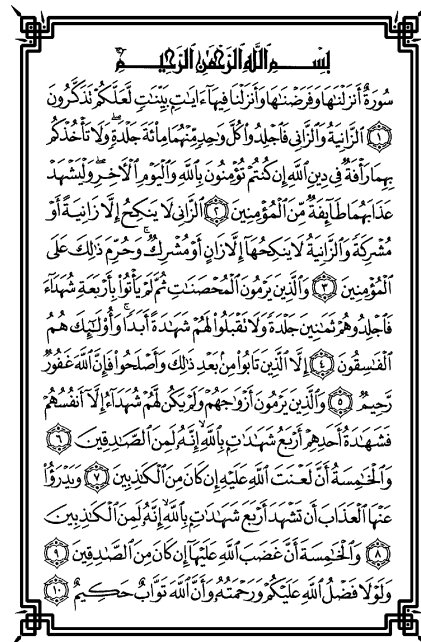 بِسْمِ اللَّهِ الرَّحْمَٰنِ الرَّحِيمِ
سُورَةٌ أَنزَلْنَاهَا وَفَرَضْنَاهَا وَأَنزَلْنَا فِيهَا ءَايَاتٍ بَيِّنَاتٍ لَّعَلَّكُمْ تَذَكَّرُونَ
﴿١﴾ الزَّانِيَةُ وَالزَّانِي فَاجْلِدُوا كُلَّ وَاحِدٍ مِّنْهُمَا مِائَةَ جَلْدَةٍ ۖ وَلَا تَأْخُذْكُم
بِهِمَا رَأْفَةٌ فِي دِينِ اللَّهِ إِن كُنتُمْ تُؤْمِنُونَ بِاللَّهِ وَالْيَوْمِ الْآخِرِ ۖ وَلْيَشْهَدْ
عَذَابَهُمَا طَائِفَةٌ مِّنَ الْمُؤْمِنِينَ ﴿٢﴾ الزَّانِي لَا يَنكِحُ إِلَّا زَانِيَةً أَوْ
مُشْرِكَةً وَالزَّانِيَةُ لَا يَنكِحُهَا إِلَّا زَانٍ أَوْ مُشْرِكٌ ۚ وَحُرِّمَ ذَٰلِكَ عَلَى
الْمُؤْمِنِينَ ﴿٣﴾ وَالَّذِينَ يَرْمُونَ الْمُحْصَنَاتِ ثُمَّ لَمْ يَأْتُوا بِأَرْبَعَةِ شُهَدَاءَ
فَاجْلِدُوهُمْ ثَمَانِينَ جَلْدَةً وَلَا تَقْبَلُوا لَهُمْ شَهَادَةً أَبَدًا ۚ وَأُولَٰئِكَ هُمُ
الْفَاسِقُونَ ﴿٤﴾ إِلَّا الَّذِينَ تَابُوا مِن بَعْدِ ذَٰلِكَ وَأَصْلَحُوا فَإِنَّ اللَّهَ غَفُورٌ
رَّحِيمٌ ﴿٥﴾ وَالَّذِينَ يَرْمُونَ أَزْوَاجَهُمْ وَلَمْ يَكُن لَّهُمْ شُهَدَاءُ إِلَّا أَنفُسُهُمْ
فَشَهَادَةُ أَحَدِهِمْ أَرْبَعُ شَهَادَاتٍ بِاللَّهِ ۙ إِنَّهُ لَمِنَ الصَّادِقِينَ ﴿٦﴾
وَالْخَامِسَةُ أَنَّ لَعْنَتَ اللَّهِ عَلَيْهِ إِن كَانَ مِنَ الْكَاذِبِينَ ﴿٧﴾ وَيَدْرَؤُا
عَنْهَا الْعَذَابَ أَن تَشْهَدَ أَرْبَعَ شَهَادَاتٍ بِاللَّهِ ۙ إِنَّهُ لَمِنَ الْكَاذِبِينَ
﴿٨﴾ وَالْخَامِسَةَ أَنَّ غَضَبَ اللَّهِ عَلَيْهَا إِن كَانَ مِنَ الصَّادِقِينَ ﴿٩﴾
وَلَوْلَا فَضْلُ اللَّهِ عَلَيْكُمْ وَرَحْمَتُهُ وَأَنَّ اللَّهَ تَوَّابٌ حَكِيمٌ ﴿١٠﴾